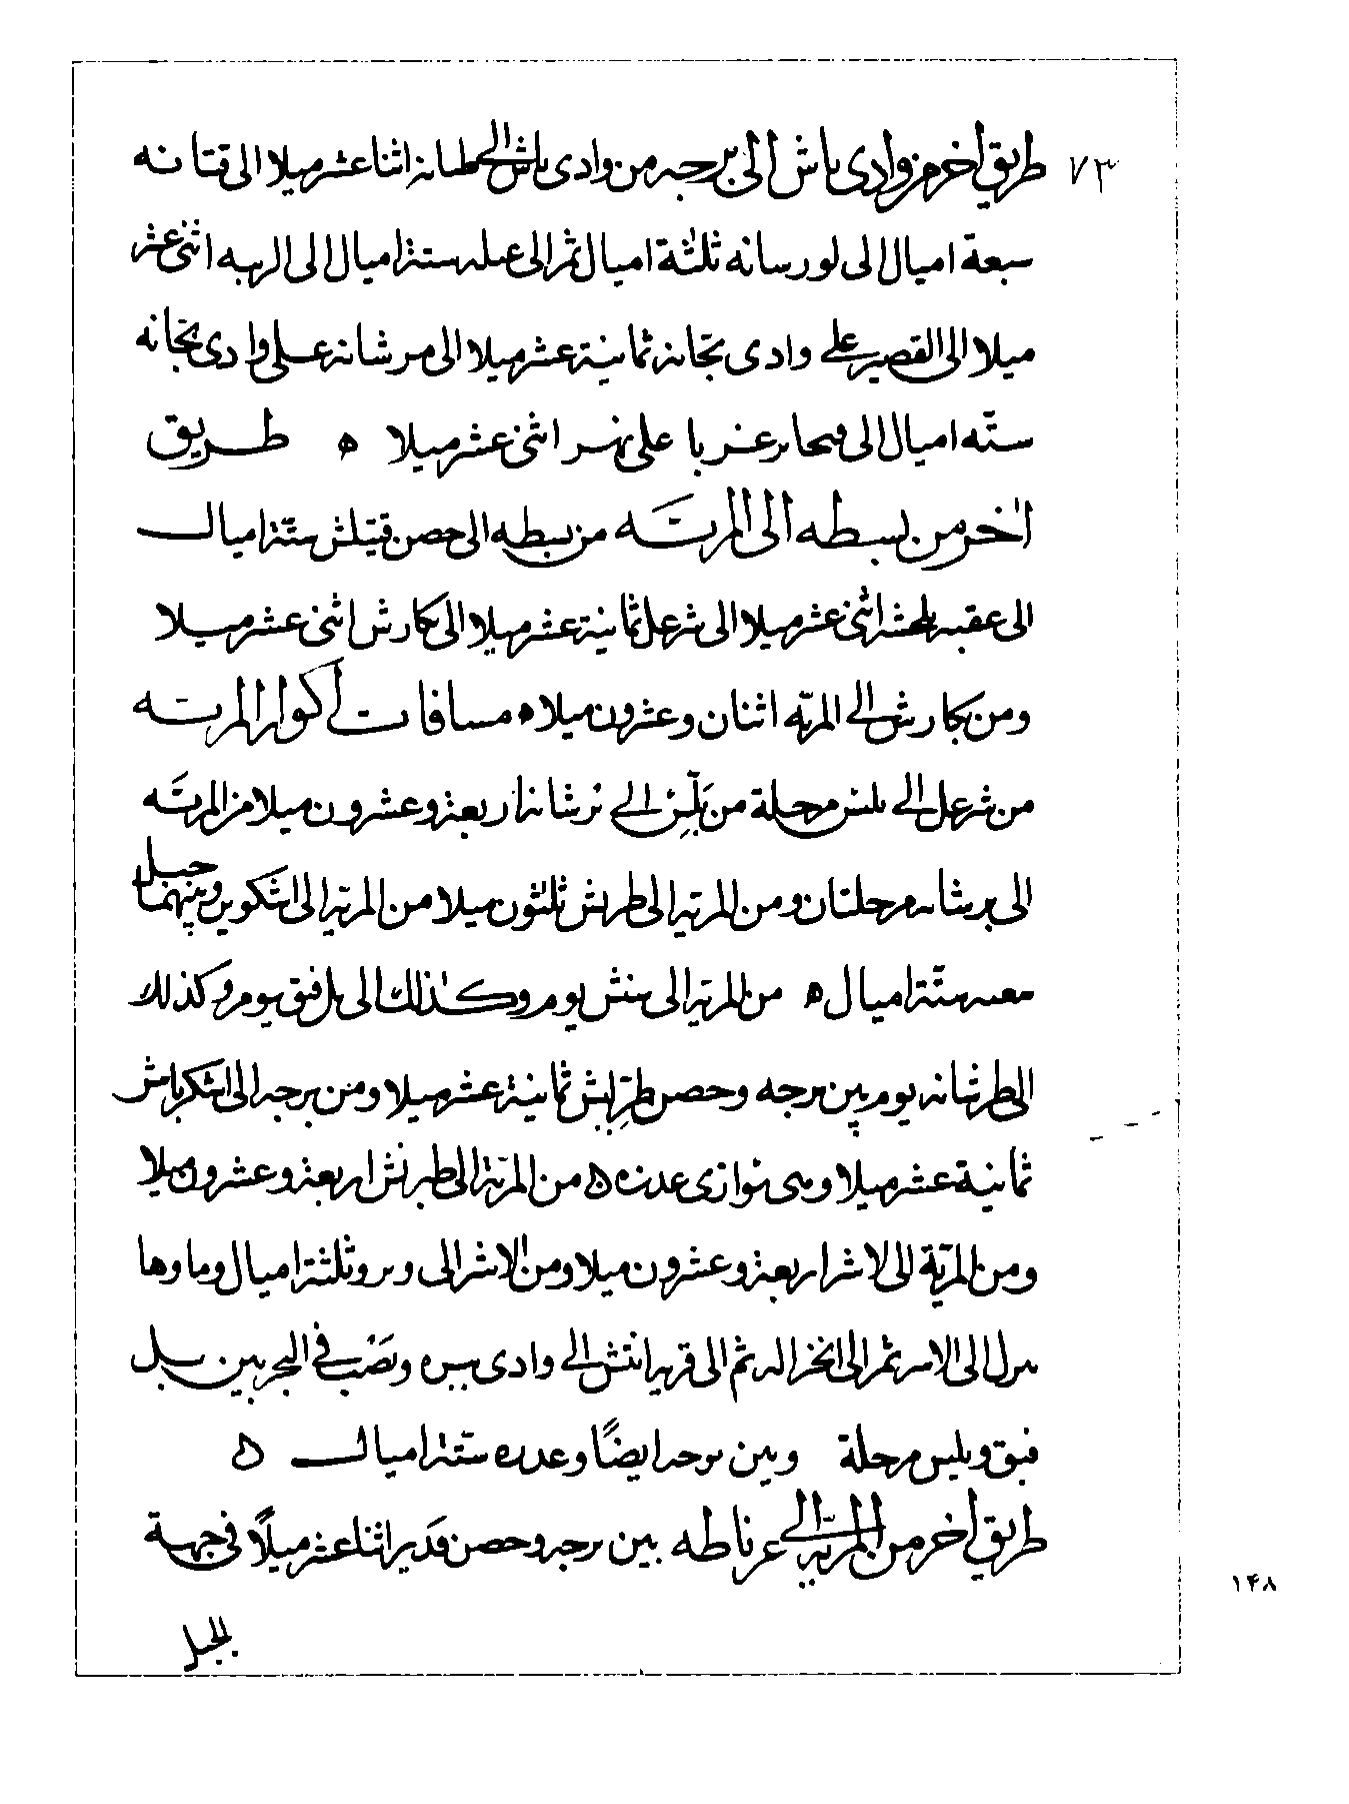 ٧٣ طريق اخر من وادى ياش الى برجه من وادى ياش الى حطانه اثنا عشر ميلا الى قتانه
سبعة اميال الى لورسانه ثلثة اميال ثم الى عبله ستة اميال الى الربه اثنى عشر
ميلا الى القصير على وادى بجانه ثمانية عشر ميلا الى مرشانه على وادى بجانه
ستّه اميال الى غربا على نهر اثنى عشر ميلا ه طريق
اخر من بسطه الى المريّه من بسطه الى حصن قتيلش ستّة اميال
الى عقبه اثنى عشر ميلا الى شرعل ثمانية عشر ميلا الى بكارش اثنى عشر ميلا
ومن بكارش الى المريّه اثنان وعشرون ميلا ه مسافات اكوار المريه
من شرعل الى بلس مرحلة من بَلّس الى برشانه اربعة وعشرون ميلا من المريّه
الى برشانه مرحلتان ومن المريه الى طرنش ثلثون ميلا من المريه الى اشكوبن وبينهما جبل
معه ستّة اميال ه من المريه الى منش يوم وكذلك الى بل فيق يوم وكذلك
الى طرشانه يوم بين برجه وحصن طرّبش ثمانية عشر ميلا ومن برجه الى اشكرياش
ثمانية عشر ميلا وهى توازى عدره ه من المريّة الى طبرنش اربعة وعشرون ميلا
ومن المريّة الى لاشر اربعة وعشرون ميلا ومن الاشر الى وبرو ثلثة اميال وماوها
ينزل الى الاسر ثم الى انخراله ثم الى قريه انتش الى وادى بيره ويصب فى البحر بين بل
فيق وبليس مرحلة وبين برجه ايضًا وعدره ستّة اميال ه
طريق اخر من المريّه الى غرناطه بين برجه وحصن قدير اثنا عشر ميلًا فى جهة
الجبل
١٤٨